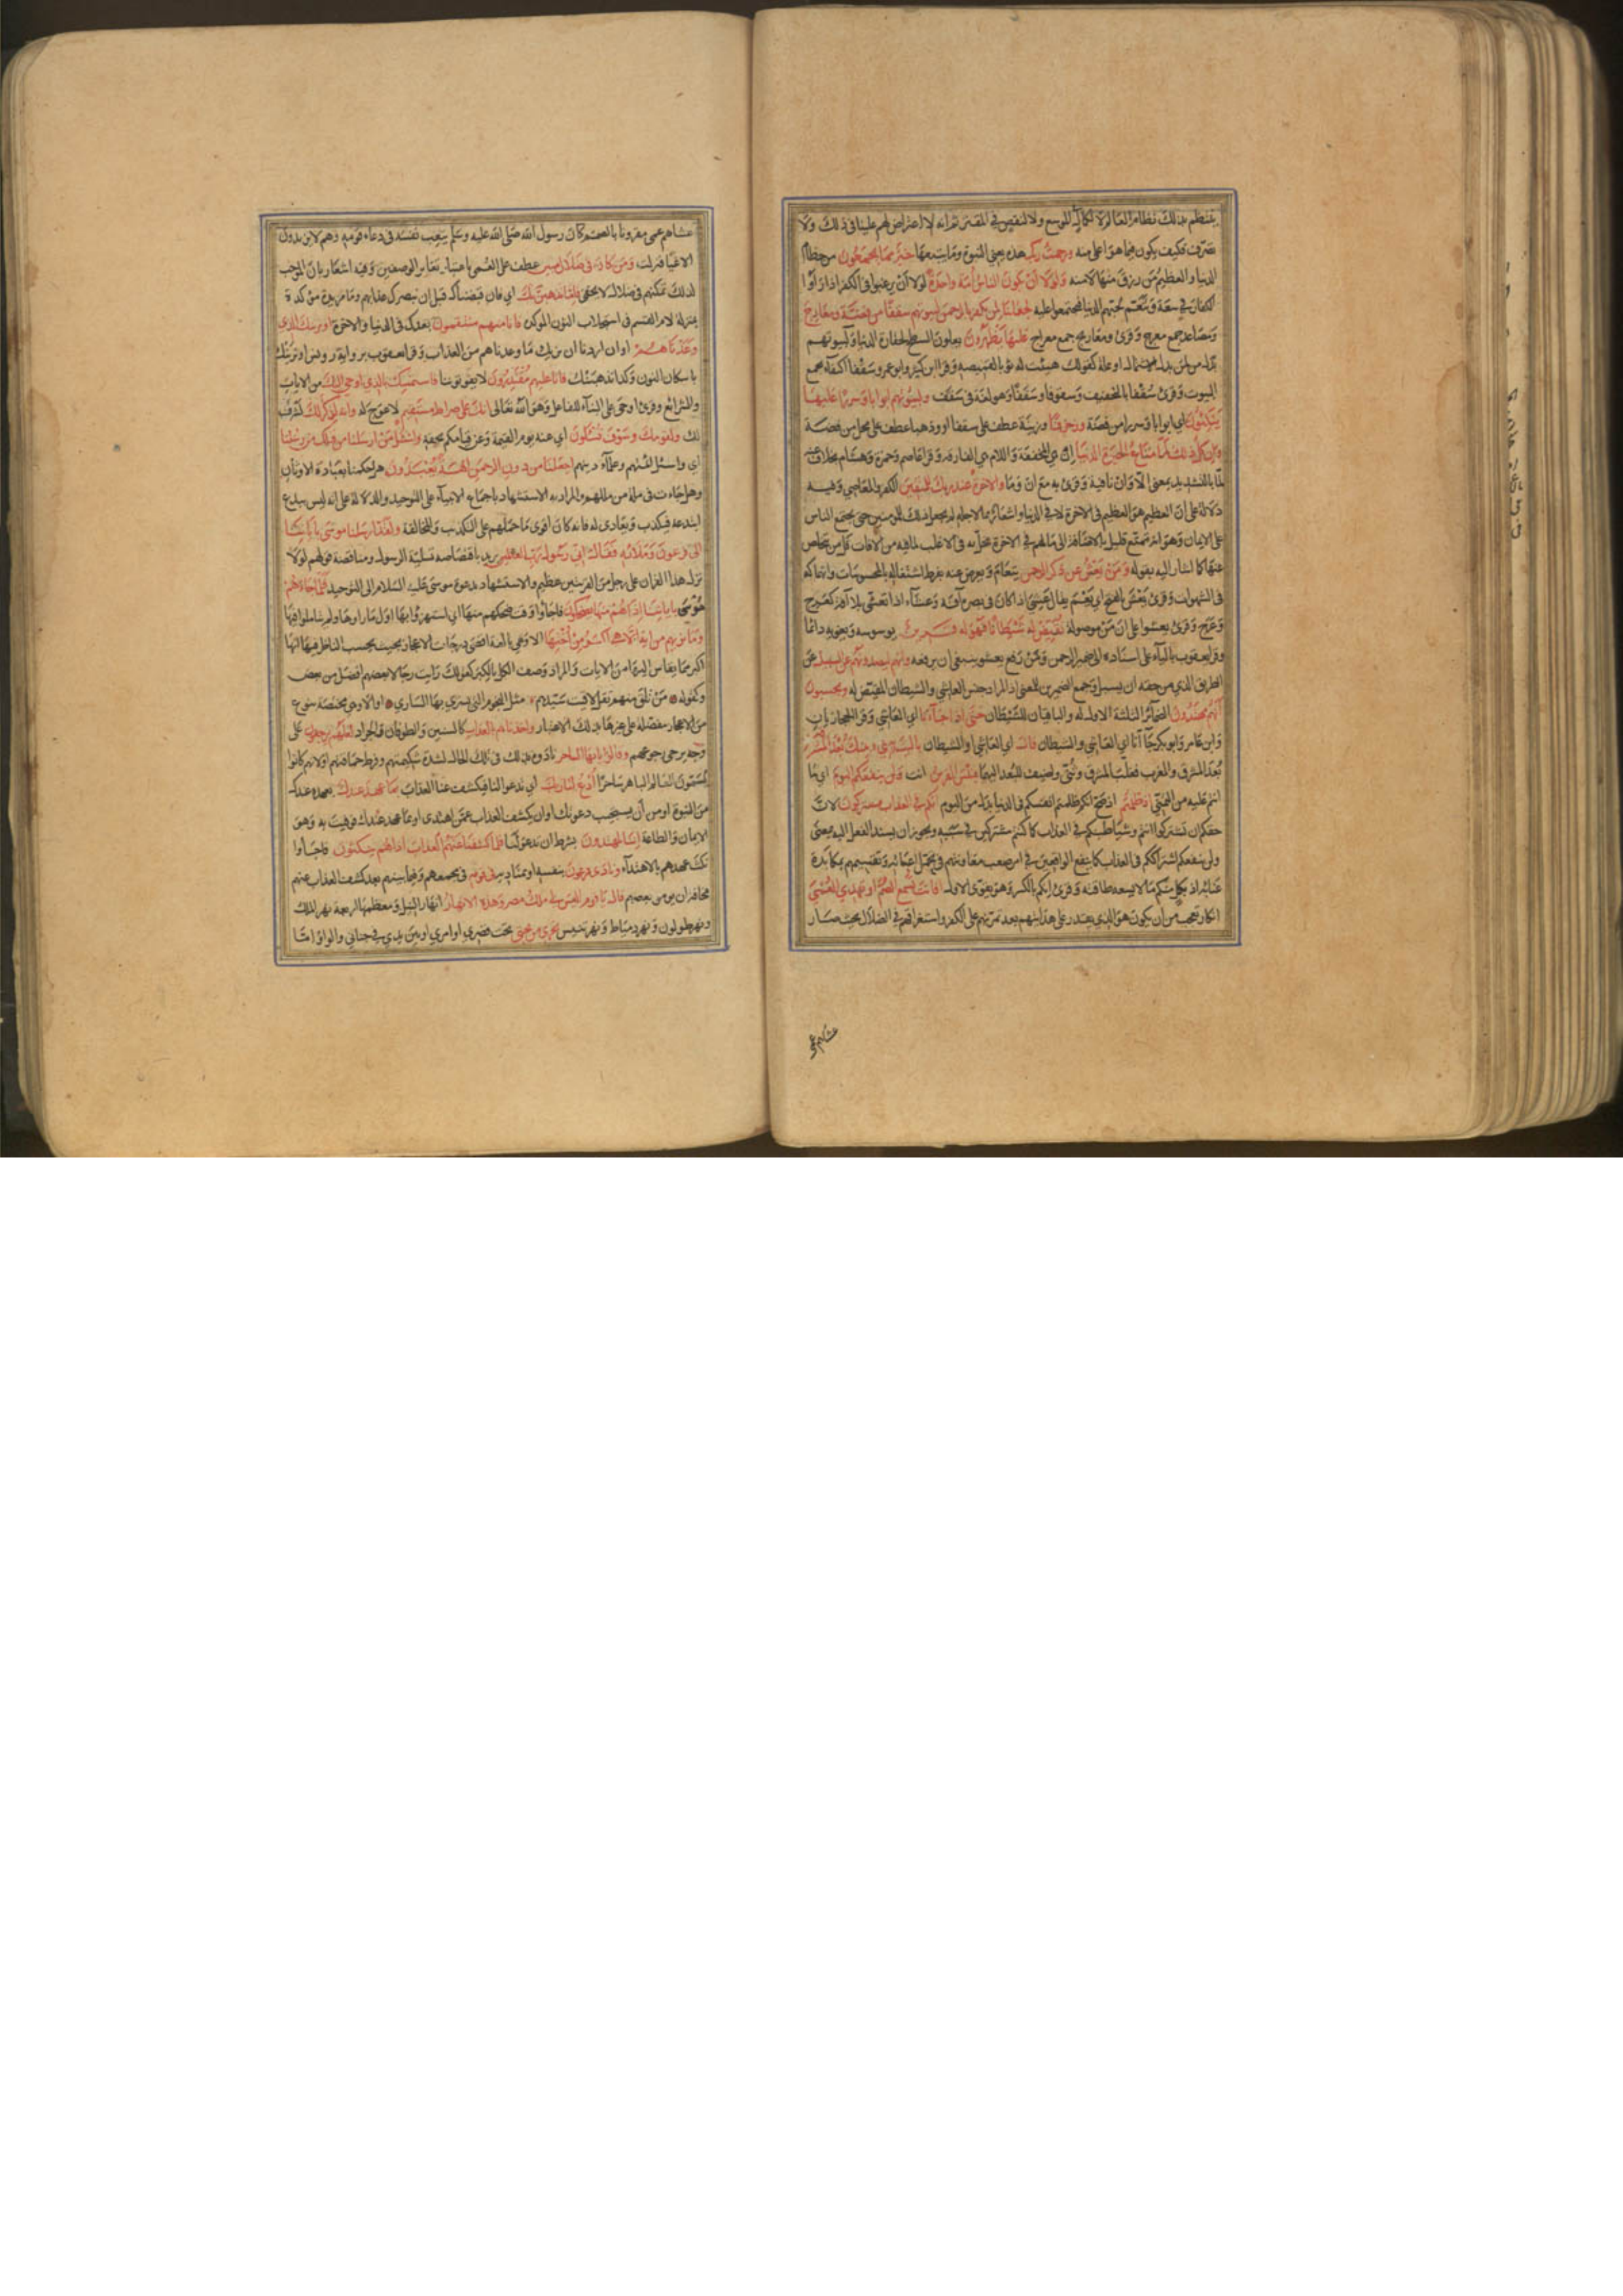 ينتظم بذلك نظام العالم لا لكمال في الموسع ولا لنقص في المقتر ثم انه لا اعتراض لهم علينا في ذلك ولا
تصرف فكيف يكون فيما هو اعلى منه ورحمت ربك هذه يعني النبوة وما يتبعها خير مما يجمعون من حطام
الدنيا والعظيم من رزق منها لا منه ولولا ان يكون الناس امة واحدة لولا ان يرغبوا في الكفر اذا راوا
الكفار في سعة وتنعم لحبهم الدنيا فيجتمعوا عليه لجعلنا لمن يكفر بالرحمن لبيوتهم سقفا من فضة ومعارج
ومصاعد جمع معرج وقرئ ومعاريج جمع معراج عليها يظهرون يعلون السطوح لحقارة الدنيا ولبيوتهم
بدل من لمن بدل الاشتمال او علة كقولك وهبت له ثوبا لقميصه وقرا ابن كثير وابو عمرو سقفا اكتفاء بجمع
البيوت وقرئ سقفا بالتخفيف وسقوفا وسقفا وهو لغة في سقف ولبيوتهم ابوابا وسررا عليها
يتكئون اي ابوابا وسررا من فضة وزخرفا وزينة عطف على سقفا او وذهبا عطف على محل من فضة
وان كل ذلك لما متاع الحيوة الدنيا ان هي المخففة واللام هي الفارقة وقرا عاصم وحمزة وهشام بخلاف عنه
لما بالتشديد بمعنى الا وان نافية وقرئ به مع ان وما والاخرة عند ربك للمتقين الكفر والمعاصي وفيه
دلالة على ان العظيم هو العظيم في الاخرة لا في الدنيا واشعار بما لاجله لم يجعل ذلك للمؤمنين حتى يجتمع الناس
على الايمان وهو انه تمتع قليل بالاضافة الى ما لهم في الاخرة مخل به في الاغلب لما فيه من الافات قل من يتخلص
عنها كما اشار اليه بقوله ومن يعش عن ذكر الرحمن يتعام ويعرض عنه بفرط اشتغاله بالمحسوسات وانهماكه
في الشهوات وقرئ يعش بالفتح اي يعم يقال عشي اذا كان في بصره آفة وعشا اذا تعشى بلا آفة كعرج
وعرج وقرئ يعشو على ان من موصولة نقيض له شيطانا فهو له قرين يوسوسه ويغويه دائما
وقرا يعقوب بالياء على اسناده الى ضمير الرحمن ومن رفع يعشو ينبغي ان يرفعه وانهم ليصدونهم عن السبيل عن
الطريق الذي من حقه ان يسبل وجمع الضميرين للمعنى اذ المراد جنس العاشي والشيطان المقيض له ويحسبون
انهم مهتدون الضمائر الثلثة الاول له والباقيان للشيطان حتى اذا جاءنا اي العاشي وقرا الحجازيان
وابن عامر وابو بكر جاآنا اي العاشي والشيطان قال اي العاشي للشيطان يا ليت بيني وبينك بعد المشرقين
بعد المشرق والمغرب فغلب المشرق وثني واضيف البعد اليهما فبئس القرين انت ولن ينفعكم اليوم اي ما
انتم عليه من التمني اذ ظلمتم اذ صح انكم ظلمتم انفسكم في الدنيا بدل من اليوم انكم في العذاب مشتركون لان
حقكم ان تشتركوا انتم وشياطينكم في العذاب كما كنتم مشتركين في سببه ويجوز ان يسند الفعل اليه بمعنى
ولن ينفعكم اشتراككم في العذاب كما ينفع الواقعين في امر صعب معاونتهم في تحمل اعبائه وتقسمهم بمكابدة
عنائه اذ بكل منكم ما لا يسعه طاقته وقرئ انكم بالكسر وهو يقوي الاول افانت تسمع الصم او تهدي العمي
انكار تعجب من ان يكون هو الذي يقدر على هدايتهم بعد تمرنهم على الكفر واستغراقهم في الضلال بحيث صار
عشاهم عمى
عشاهم عمى مقرونا بالصمم كان رسول الله صلى الله عليه وسلم يتعب نفسه في دعاء قومه وهم لا يزيدون
الا غيا فنزلت ومن كان في ضلال مبين عطف على العمي باعتبار تغاير الوصفين وفيه اشعار بان الموجب
لذلك تمكنهم في ضلال لا يخفى فاما نذهبن بك اي فان قبضناك قبل ان نبصرك عذابهم وما مزيدة مؤكدة
بمنزلة لام القسم في استجلاب النون المؤكدة فانا منهم منتقمون بعدك في الدنيا والاخرة او نرينك الذي
وعدناهم او ان اردنا ان نريك ما وعدناهم من العذاب وقرا يعقوب برواية رويس او نرينك
باسكان النون وكذا نذهبن بك فانا عليهم مقتدرون لا يفوتوننا فاستمسك بالذي اوحي اليك من الايات
والشرائع وقرئ اوحى على البناء للفاعل وهو الله تعالى انك على صراط مستقيم لا عوج له وانه لذكر لك لشرف
لك ولقومك وسوف تسئلون اي عنه يوم القيمة وعن قيامكم بحقه واسئل من ارسلنا من قبلك من رسلنا
اي واسئل اممهم وعلماء دينهم اجعلنا من دون الرحمن الهة يعبدون هل حكمنا بعبادة الاوثان
وهل جاءت في ملة من مللهم والمراد به الاستشهاد باجماع الانبياء على التوحيد والدلالة على انه ليس ببدع
ابتدعه فيكذب ويعادى له فانه كان اقوى ما حملهم على التكذيب والمخالفة ولقد ارسلنا موسى باياتنا
الى فرعون وملائه فقال اني رسول رب العالمين يريد باقتصاصه تسلية الرسول ومناقضة قولهم لولا
نزل هذا القران على رجل من القريتين عظيم والاستشهاد بدعوة موسى عليه السلام الى التوحيد فلما جاءهم
موسى باياتنا اذا هم منها يضحكون فاجاؤا وقت ضحكهم منها اي استهزؤا بها اول ما راوها ولم يتاملوا فيها
وما نريهم من اية الا هي اكبر من اختها الا وهي بالغة اقصى درجات الاعجاز بحيث يحسب الناظر فيها انها
اكبر مما يقاس اليها من الايات والمراد وصف الكل بالكبر كقولك رايت رجالا بعضهم افضل من بعض
وكقوله من تلق منهم تقل لاقيت سيدهم مثل النجوم التي يسري بها الساري او الا وهي مختصة بنوع
من الاعجاز مفضلة على غيرها بذلك الاعتبار واخذناهم بالعذاب كالسنين والطوفان والجراد لعلهم يرجعون على
وجه يرجى رجوعهم وقالوا يا ايها الساحر نادوه بذلك في تلك الحال لشدة شكيمتهم وفرط حماقتهم او لانهم كانوا
يسمون العالم الباهر ساحرا ادع لنا ربك اي تدعو لنا فيكشف عنا العذاب بما عهد عندك بعهده عندك
من النبوة او من ان يستجيب دعوتك او ان يكشف العذاب عمن اهتدى او بما عهد عندك فوفيت به وهو
الايمان والطاعة اننا لمهتدون بشرط ان تدعو لنا فلما كشفنا عنهم العذاب اذا هم ينكثون فاجأوا
نكث عهدهم بالاهتداء ونادى فرعون بنفسه او بمناديه في قومه في مجمعهم وفيما بينهم بعد كشف العذاب عنهم
مخافة ان يؤمن بعضهم قال يا قوم اليس لي ملك مصر وهذه الانهار انهار النيل ومعظمها اربعة نهر الملك
ونهر طولون ونهر دمياط ونهر تنيس تجري من تحتي تحت قصري او امري او بين يدي في جناني والواو اما